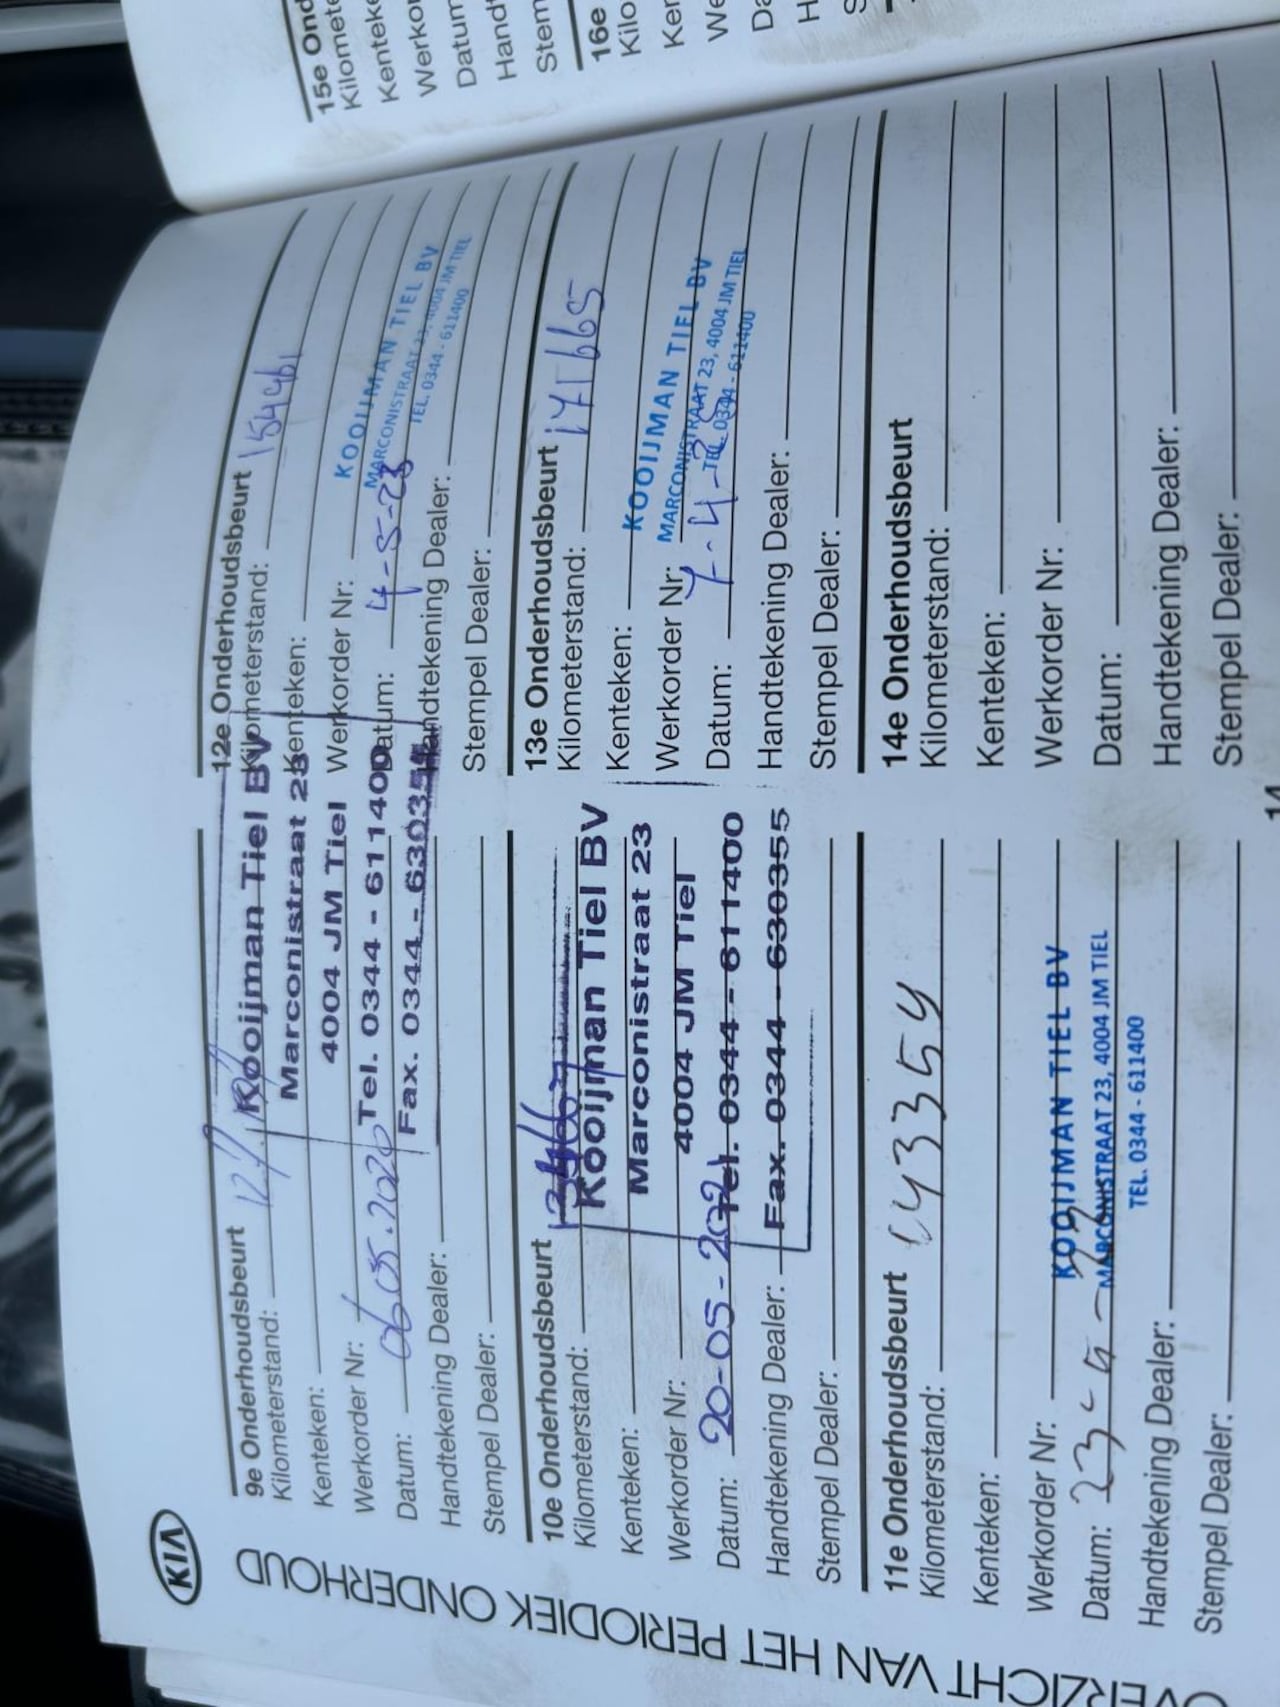 KIA
ERZICHT VAN HET PERIODIEK ONDERHOUD
9e Onderhoudsbeurt
Kilometerstand:
Kenteken:
Werkorder Nr:
Datum: 06.05.2020
Handtekening Dealer:
Stempel Dealer:
Kooijman Tiel BV
Marconistraat 23
4004 JM Tiel
Tel. 0344 - 611400
Fax. 0344 - 630355
10e Onderhoudsbeurt
Kilometerstand:
Kenteken:
Werkorder Nr:
Datum: 20-05-2021
Handtekening Dealer:
Stempel Dealer:
Kooijman Tiel BV
Marconistraat 23
4004 JM Tiel
Tel. 0344 - 611400
Fax. 0344 - 630355
11e Onderhoudsbeurt
Kilometerstand: 143354
Kenteken:
Werkorder Nr:
Datum:
Handtekening Dealer:
Stempel Dealer:
KOOIJMAN TIEL BV
MARCONISTRAAT 23, 4004 JM TIEL
TEL. 0344 - 611400
12e Onderhoudsbeurt
Kilometerstand: 154461
Kenteken:
Werkorder Nr:
Datum: 4-5-23
Handtekening Dealer:
Stempel Dealer:
KOOIJMAN TIEL BV
MARCONISTRAAT 23, 4004 JM TIEL
TEL. 0344 - 611400
13e Onderhoudsbeurt
Kilometerstand: 171665
Kenteken:
Werkorder Nr:
Datum:
Handtekening Dealer:
Stempel Dealer:
KOOIJMAN TIEL BV
MARCONISTRAAT 23, 4004 JM TIEL
TEL. 0344 - 611400
14e Onderhoudsbeurt
Kilometerstand:
Kenteken:
Werkorder Nr:
Datum:
Handtekening Dealer:
Stempel Dealer:
14
15e Ond
Kilomete
Kenteke
Werkor
Datum
Handt
Stem
16e
Kilo
Ker
We
Da
H
S